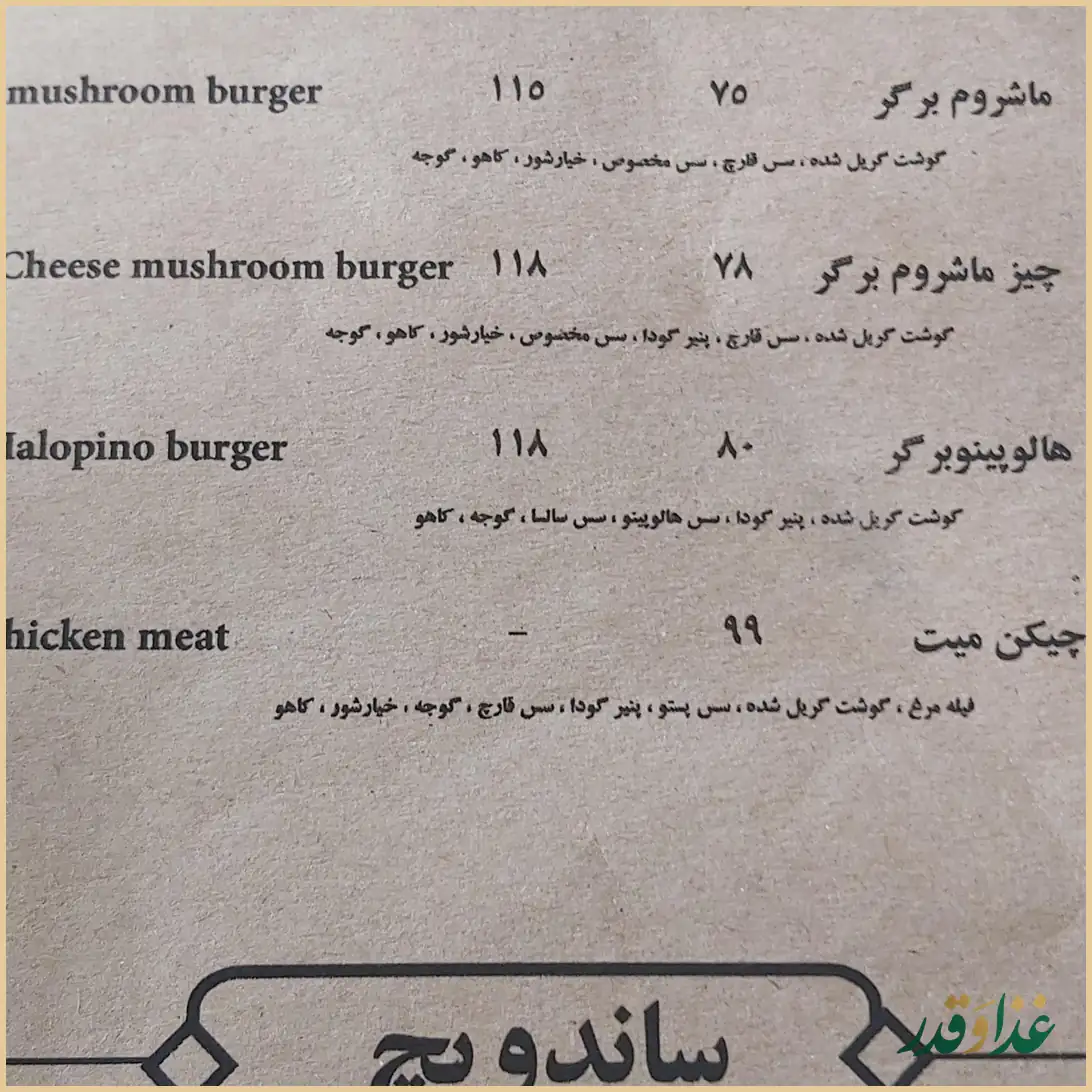 ماشروم برگر ۷۵ ۱۱۵ mushroom burger
گوشت گریل شده ، سس قارچ ، سس مخصوص ، خیارشور ، کاهو ، گوجه
چیز ماشروم برگر ۷۸ ۱۱۸ Cheese mushroom burger
گوشت گریل شده ، سس قارچ ، پنیر گودا ، سس مخصوص ، خیارشور ، کاهو ، گوجه
هالوپینوبرگر ۸۰ ۱۱۸ Halopino burger
گوشت گریل شده ، پنیر گودا ، سس هالوپینو ، سس سالسا ، گوجه ، کاهو
چیکن میت ۹۹ – hicken meat
فیله مرغ ، گوشت گریل شده ، سس پستو ، پنیر گودا ، سس قارچ ، گوجه ، خیارشور ، کاهو
ساندویچ
غذا و قدر